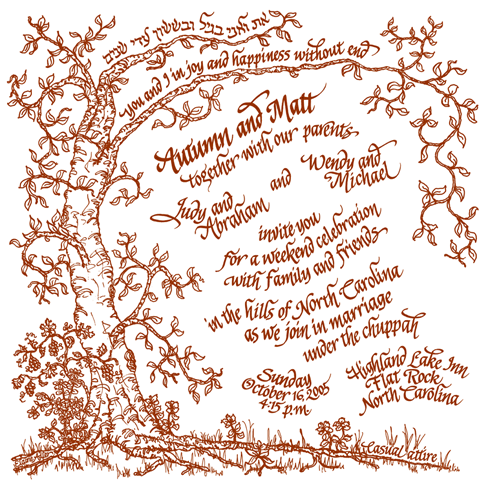 את ואני בגיל ובששון
you and I in joy and happiness without end
Autumn and Matt
together with our parents
Wendy and
Michael
and
Judy and
Abraham
invite you
for a weekend celebration
with family and friends
in the hills of North Carolina
as we join in marriage
under the chuppah
Sunday
October 16, 2005
4:15 p.m.
Highland Lake Inn
Flat Rock
North Carolina
Casual attire